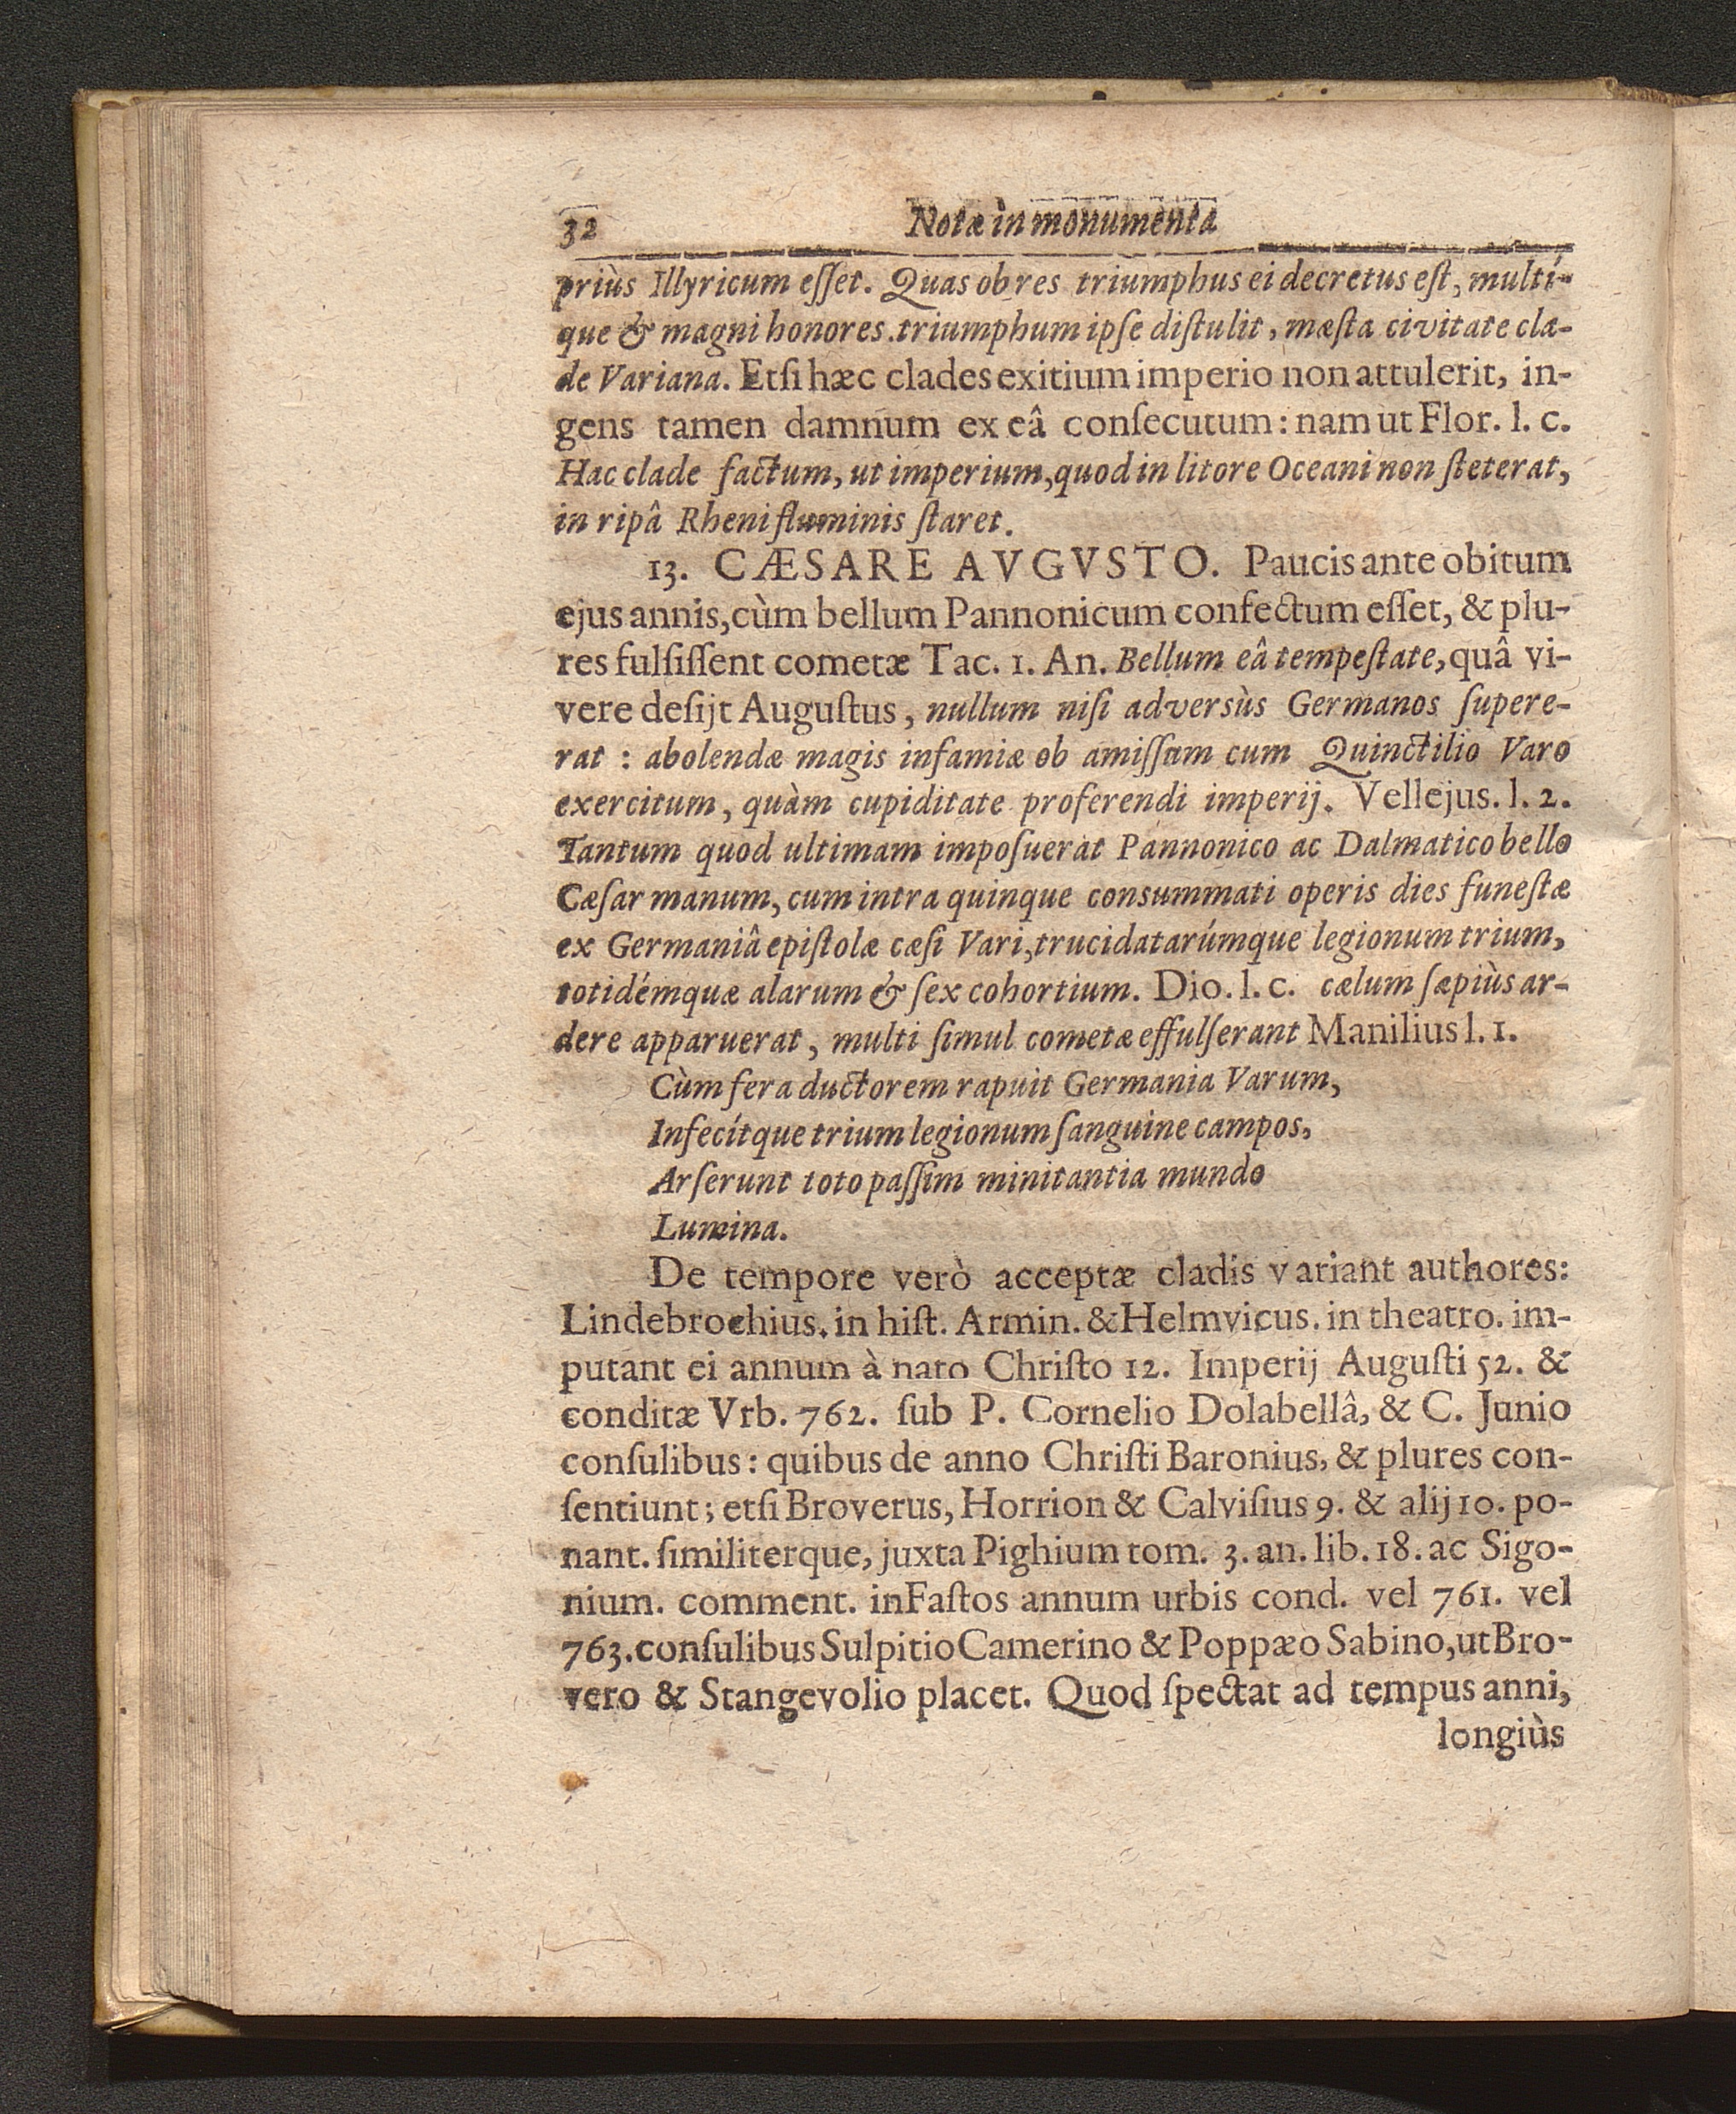 32 Notæ in monumenta
priùs Illyricum eſſet. Quas ob res triumphus ei decretus eſt, multí-
que & magni honores. triumphum ipſe diſtulit, mæſta civitate cla-
de Variana. Etſi hæc clades exitium imperio non attulerit, in-
gens tamen damnum ex eâ conſecutum: nam ut Flor. l. c.
Hac clade factum, ut imperium, quod in litore Oceani non ſteterat,
in ripâ Rheni fluminis ſtaret.
13. CÆSARE AVGVSTO. Paucis ante obitum
ejus annis, cùm bellum Pannonicum confectum eſſet, & plu-
res fulſiſſent cometæ Tac. 1. An. Bellum eâ tempeſtate, quâ vi-
vere deſijt Auguſtus, nullum niſi adversùs Germanos ſupere-
rat: abolendæ magis infamiæ ob amiſſum cum Quinctilio Varo
exercitum, quàm cupiditate proferendi imperij. Vellejus. l. 2.
Tantum quod ultimam impoſuerat Pannonico ac Dalmatico bello
Cæſar manum, cum intra quinque consummati operis dies funeſtæ
ex Germaniâ epiſtolæ cæſi Vari, trucidatarúmque legionum trium,
totidémquæ alarum & ſex cohortium. Dio. l. c. cælum ſæpiùs ar-
dere apparuerat, multi ſimul cometæ effulſerant Manilius l. 1.
Cùm fera ductorem rapuit Germania Varum,
Infecítque trium legionum ſanguine campos,
Arſerunt toto paſſim minitantia mundo
Lumina.
De tempore verò acceptæ cladis variant authores:
Lindebrochius. in hiſt. Armin. & Helmvicus. in theatro. im-
putant ei annum à nato Chriſto 12. Imperij Auguſti 52. &
conditæ Vrb. 762. ſub P. Cornelio Dolabellâ, & C. Junio
conſulibus: quibus de anno Chriſti Baronius, & plures con-
ſentiunt; etſi Broverus, Horrion & Calviſius 9. & alij 10. po-
nant. ſimiliterque, juxta Pighium tom. 3. an. lib. 18. ac Sigo-
nium. comment. in Faſtos annum urbis cond. vel 761. vel
763. conſulibus Sulpitio Camerino & Poppæo Sabino, ut Bro-
vero & Stangevolio placet. Quod ſpectat ad tempus anni,
longiùs